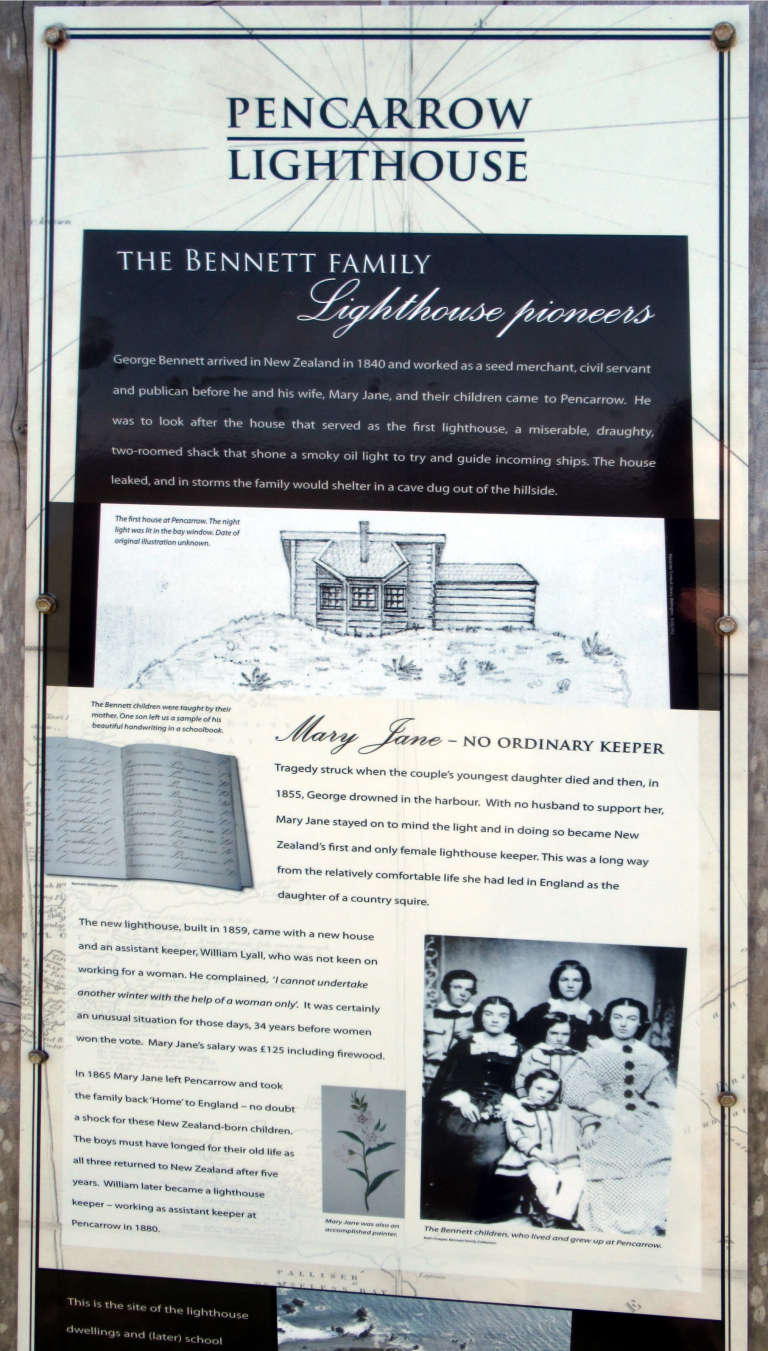 PENCARROW
LIGHTHOUSE
THE BENNETT FAMILY
Lighthouse pioneers
George Bennett arrived in New Zealand in 1840 and worked as a seed merchant, civil servant
and publican before he and his wife, Mary Jane, and their children came to Pencarrow. He
was to look after the house that served as the first lighthouse, a miserable, draughty,
two-roomed shack that shone a smoky oil light to try and guide incoming ships. The house
leaked, and in storms the family would shelter in a cave dug out of the hillside.
The first house at Pencarrow. The night
light was lit in the bay window. Date of
original illustration unknown.
The Bennett children were taught by their
mother. One son left us a sample of his
beautiful handwriting in a schoolbook.
Mary Jane – NO ORDINARY KEEPER
Tragedy struck when the couple's youngest daughter died and then, in
1855, George drowned in the harbour. With no husband to support her,
Mary Jane stayed on to mind the light and in doing so became New
Zealand's first and only female lighthouse keeper. This was a long way
from the relatively comfortable life she had led in England as the
daughter of a country squire.
The new lighthouse, built in 1859, came with a new house
and an assistant keeper, William Lyall, who was not keen on
working for a woman. He complained, 'I cannot undertake
another winter with the help of a woman only'. It was certainly
an unusual situation for those days, 34 years before women
won the vote. Mary Jane's salary was £125 including firewood.
In 1865 Mary Jane left Pencarrow and took
the family back 'Home' to England – no doubt
a shock for these New Zealand-born children.
The boys must have longed for their old life as
all three returned to New Zealand after five
years. William later became a lighthouse
keeper – working as assistant keeper at
Pencarrow in 1880.
Mary Jane was also an
accomplished painter.
The Bennett children, who lived and grew up at Pencarrow.
PALLISER
BAY
This is the site of the lighthouse
dwellings and (later) school